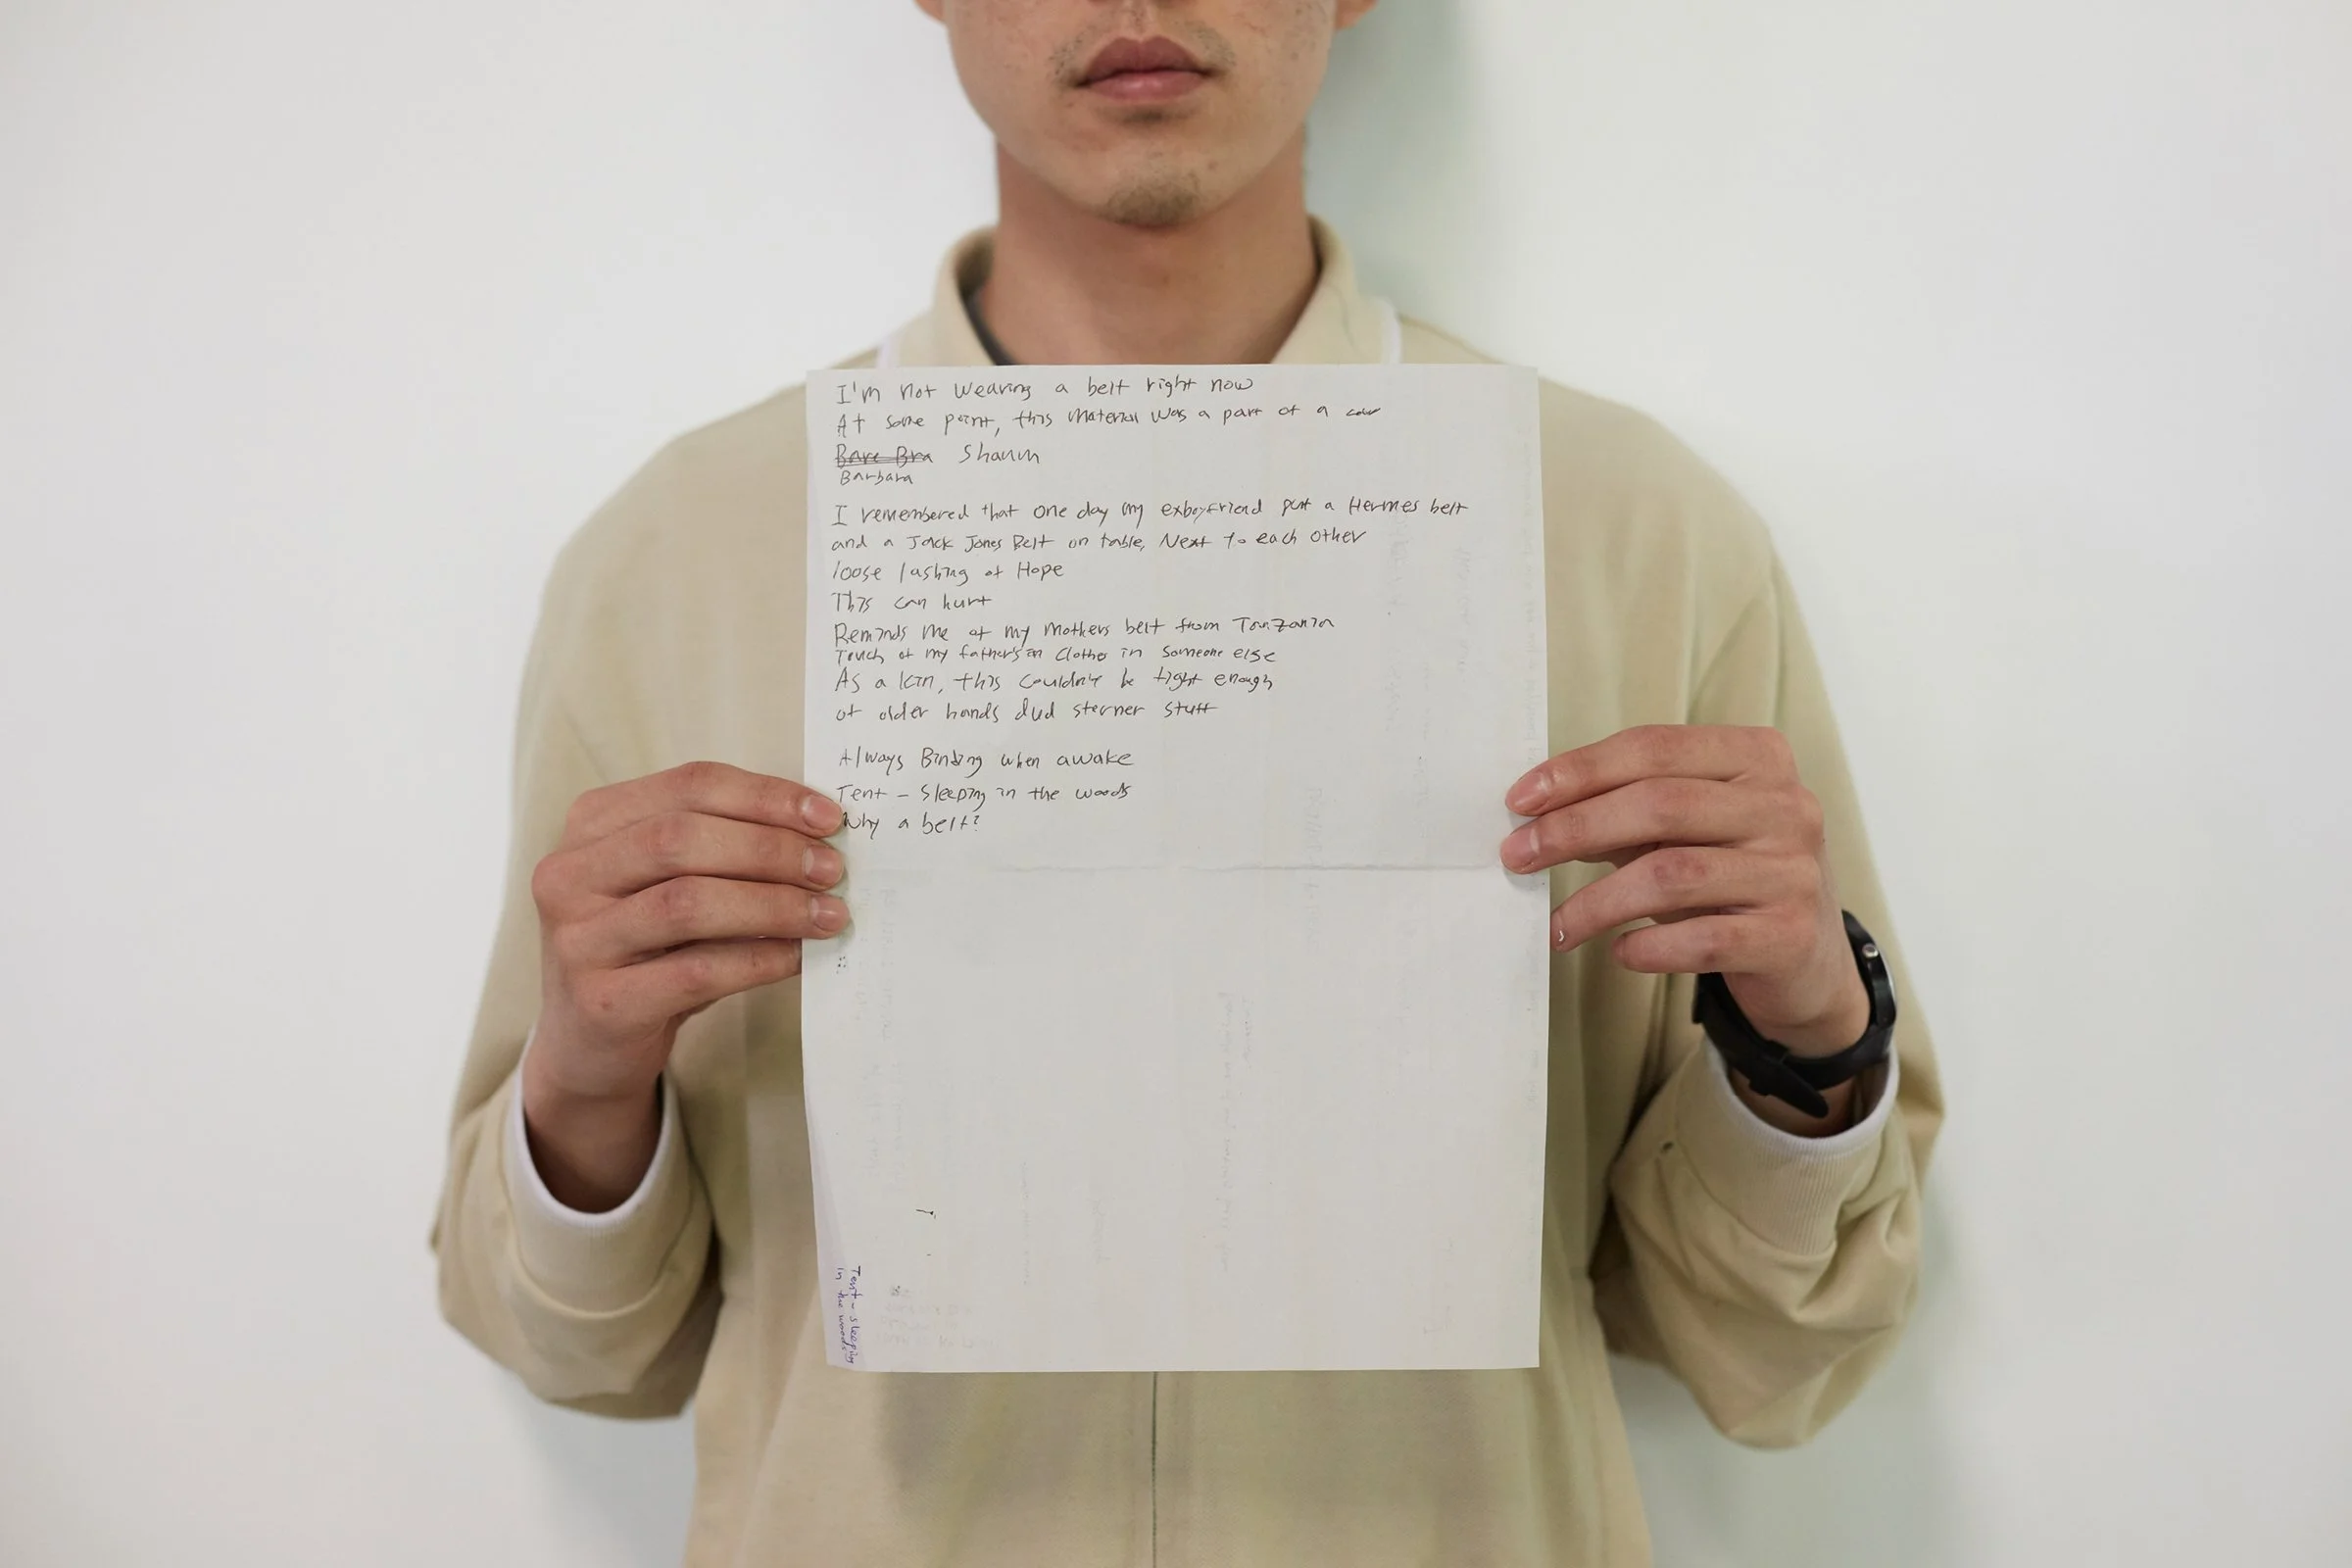 I'm not wearing a belt right now
At some point, this material was a part of a cow
Bare Bra Shaun
Barbara
I remembered that one day my exboyfriend put a Hermes belt
and a Jack Jones Belt on table, Next to each other
loose lashing of Hope
This can hurt
Reminds me of my mothers belt from Tanzania
Touch of my father's in clothes in someone else
As a kin, this couldn't be tight enough
of older hands dud sterner stuff
Always Binding when awake
Tent - Sleeping in the woods
Why a belt?
Tent - sleeping
in the woods